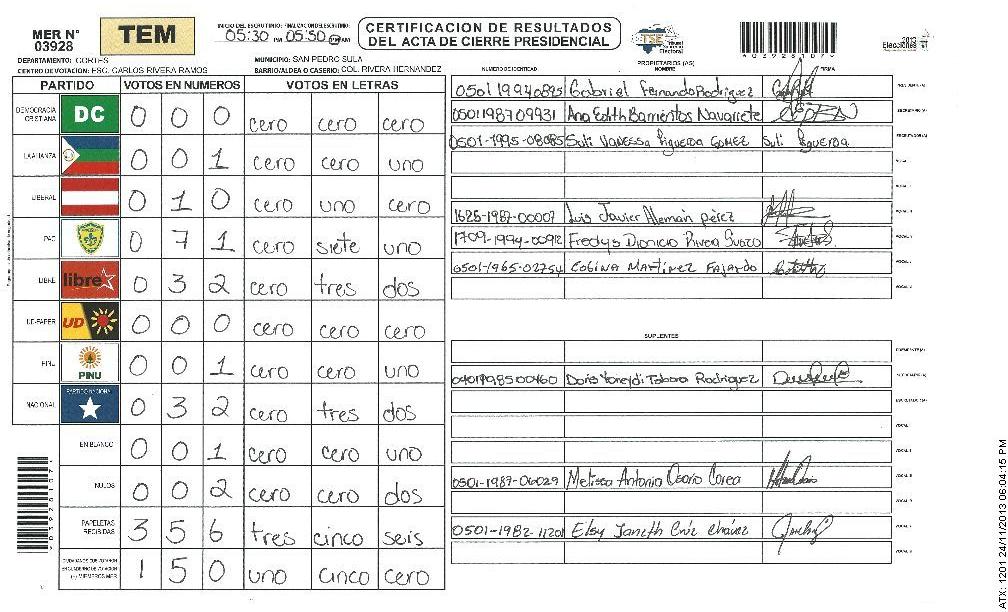 MER N° 03928
TEM
INICIO DEL ESCRUTINIO: FINALIZACION DEL ESCRUTINIO:
05:30 PM 05:50 PM
CERTIFICACION DE RESULTADOS
DEL ACTA DE CIERRE PRESIDENCIAL
TSE Tribunal Supremo Electoral
2013
Elecciones
DEPARTAMENTO: CORTES
MUNICIPIO: SAN PEDRO SULA
CENTRO DE VOTACION: ESC. CARLOS RIVERA RAMOS
BARRIO/ALDEA O CASERIO: COL. RIVERA HERNANDEZ
PARTIDO VOTOS EN NUMEROS VOTOS EN LETRAS
DEMOCRACIA CRISTIANA DC 0 0 0 cero cero cero
LA ALIANZA 0 0 1 cero cero uno
LIBERAL 0 1 0 cero uno cero
PAC 0 7 1 cero siete uno
LIBRE libre 0 3 2 cero tres dos
UD-FAPER UD 0 0 0 cero cero cero
PINU PINU 0 0 1 cero cero uno
NACIONAL PARTIDO NACIONAL 0 3 2 cero tres dos
EN BLANCO 0 0 1 cero cero uno
NULOS 0 0 2 cero cero dos
PAPELETAS RECIBIDAS 3 5 6 tres cinco seis
1 5 0 uno cinco cero
(+) MIEMBROS MER
PROPIETARIOS (AS)
NUMERO DE IDENTIDAD NOMBRE FIRMA
Gabriel Fernando Rodriguez
0501198709931 Ana Edith Barrientos Navarrete
0501-1995-08085 Suli Vanessa Figueroa Gomez Suli Figueroa
1626-1987-00007 Luis Javier Aleman perez
1709-1994-00912 Fredys Dionicio Rivera Suazo
0501-1965-02754 Cobina Martinez Fajardo
SUPLENTES
0401198500460 Doris Yoneydi Tabora Rodriguez
0501-1987-06029 Melissa Antonia Osorio Corea
0501-1982-11201 Elsy Janeth Cruz Chávez
ATX: 1201 24/11/2013 06:04:15 PM